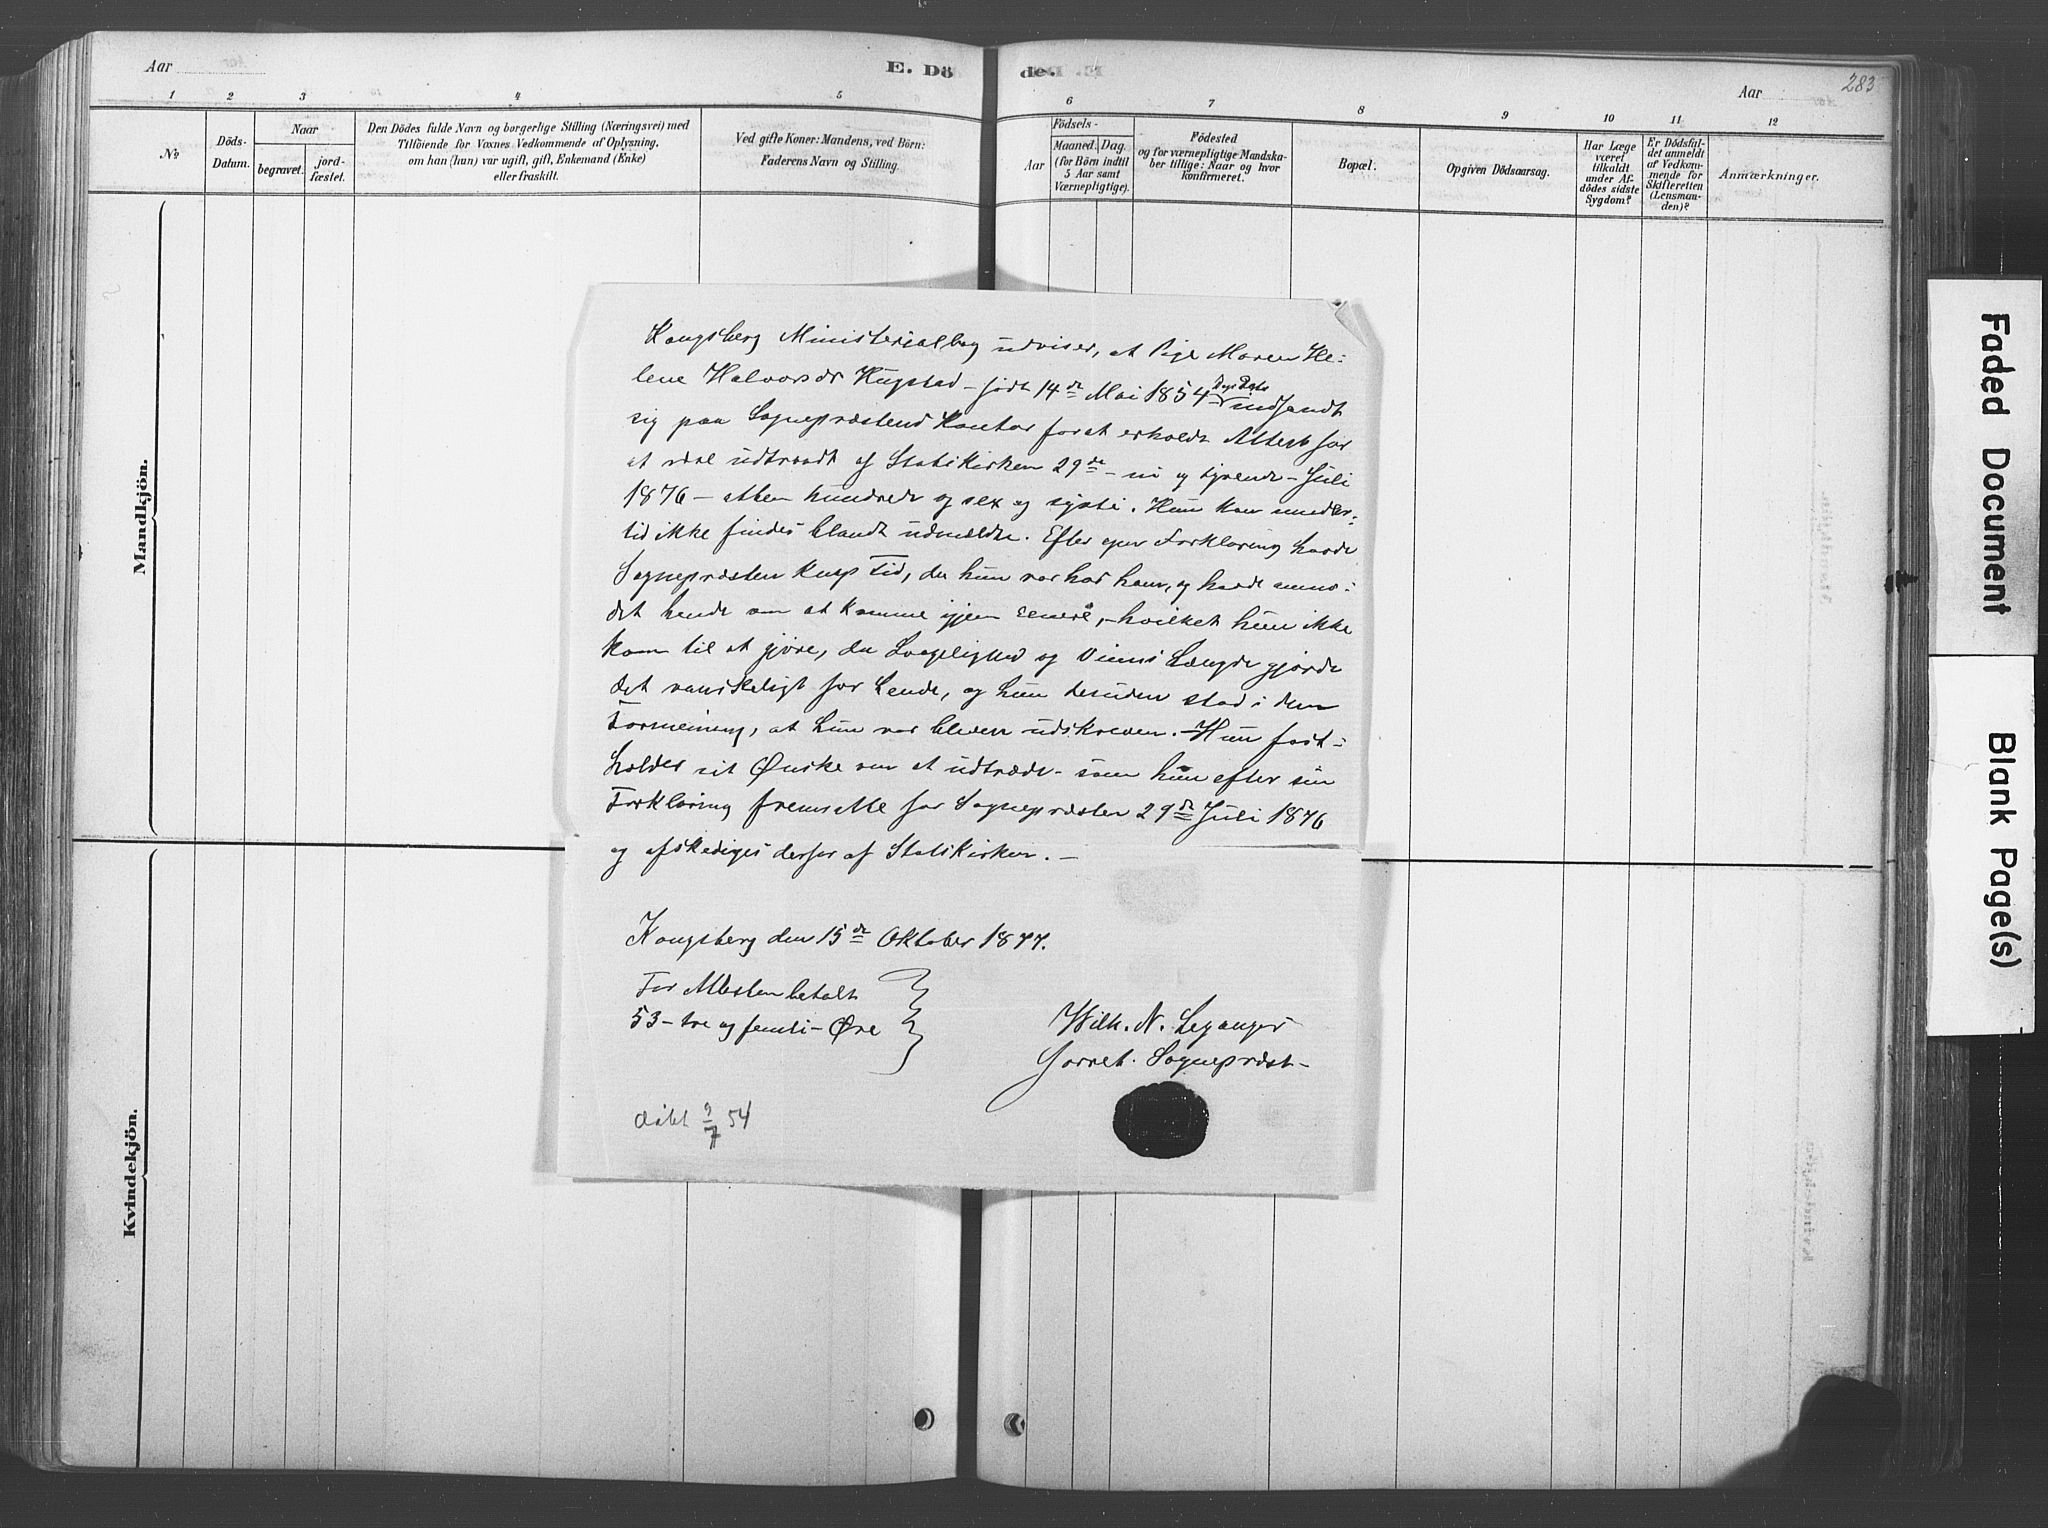 Aar
E. Dö
de.
Aar
283
1 2 3 4 5
6 7 8 9 10 11 12
No
Döds-
Datum.
Naar
begravet.
jord-
fæstet.
Den Dödes fulde Navn og borgerlige Stilling (Næringsvei) med
Tilföiende for Voxnes Vedkommende af Oplysning,
om han (hun) var ugift, gift, Enkemand (Enke)
eller fraskilt.
Ved gifte Koner: Mandens, ved Börn:
Faderens Navn og Stilling.
Födsels-
Aar
Maaned.
Dag.
(for Börn indtil
5 Aar samt
Værnepligtige).
Födested
og for værnepligtige Mandska-
ber tillige: Naar og hvor
konfirmeret.
Bopæl.
Opgiven Dödsaarsag.
Har Læge
været
tilkaldt
under Af-
dödes sidste
Sygdom?
Er Dödsfal-
det anmeldt
af Vedkom-
mende for
Skifteretten
(Lensman-
den)?
Anmærkninger.
Mandkjön.
Kvindekjön.
Kongsberg Ministerialbog udviser, at Pige Maren He-
lene Halvorsdr Hugstad - født 14de Mai 1854 indfandt
sig paa Sognepræstens Kontor for at erholde Attest for
at være udtraadt af Statskirken 29de - ni og tyvende - Juli
1876 - atten hundrede og sex og sytti. Hun kan imidler-
tid ikke findes blandt udmeldte. Efter Forklaring havde
Sognepræsten knap Tid, da hun var hos ham, og havde anmo-
det hende om at komme igjen senere, - hvilket hun ikke
kom til at gjøre, da og Veiens Længde gjorde
det vanskeligt for hende, og hun desuden stod i den
Formening, at hun var bleven udskreven. - Hun fast-
holder sit Ønske om at udtræde - som hun efter sin
Forklaring fremsatte for Sognepræsten 29de Juli 1876
og afskediges derfor af Statskirken. -
Kongsberg den 15de Oktober 1877.
For Attesten betalt
53 - tre og femti - Øre
Wilh. N. Leganger
Sognepræst -
døbt 9/7 54
Faded Document
Blank Page(s)